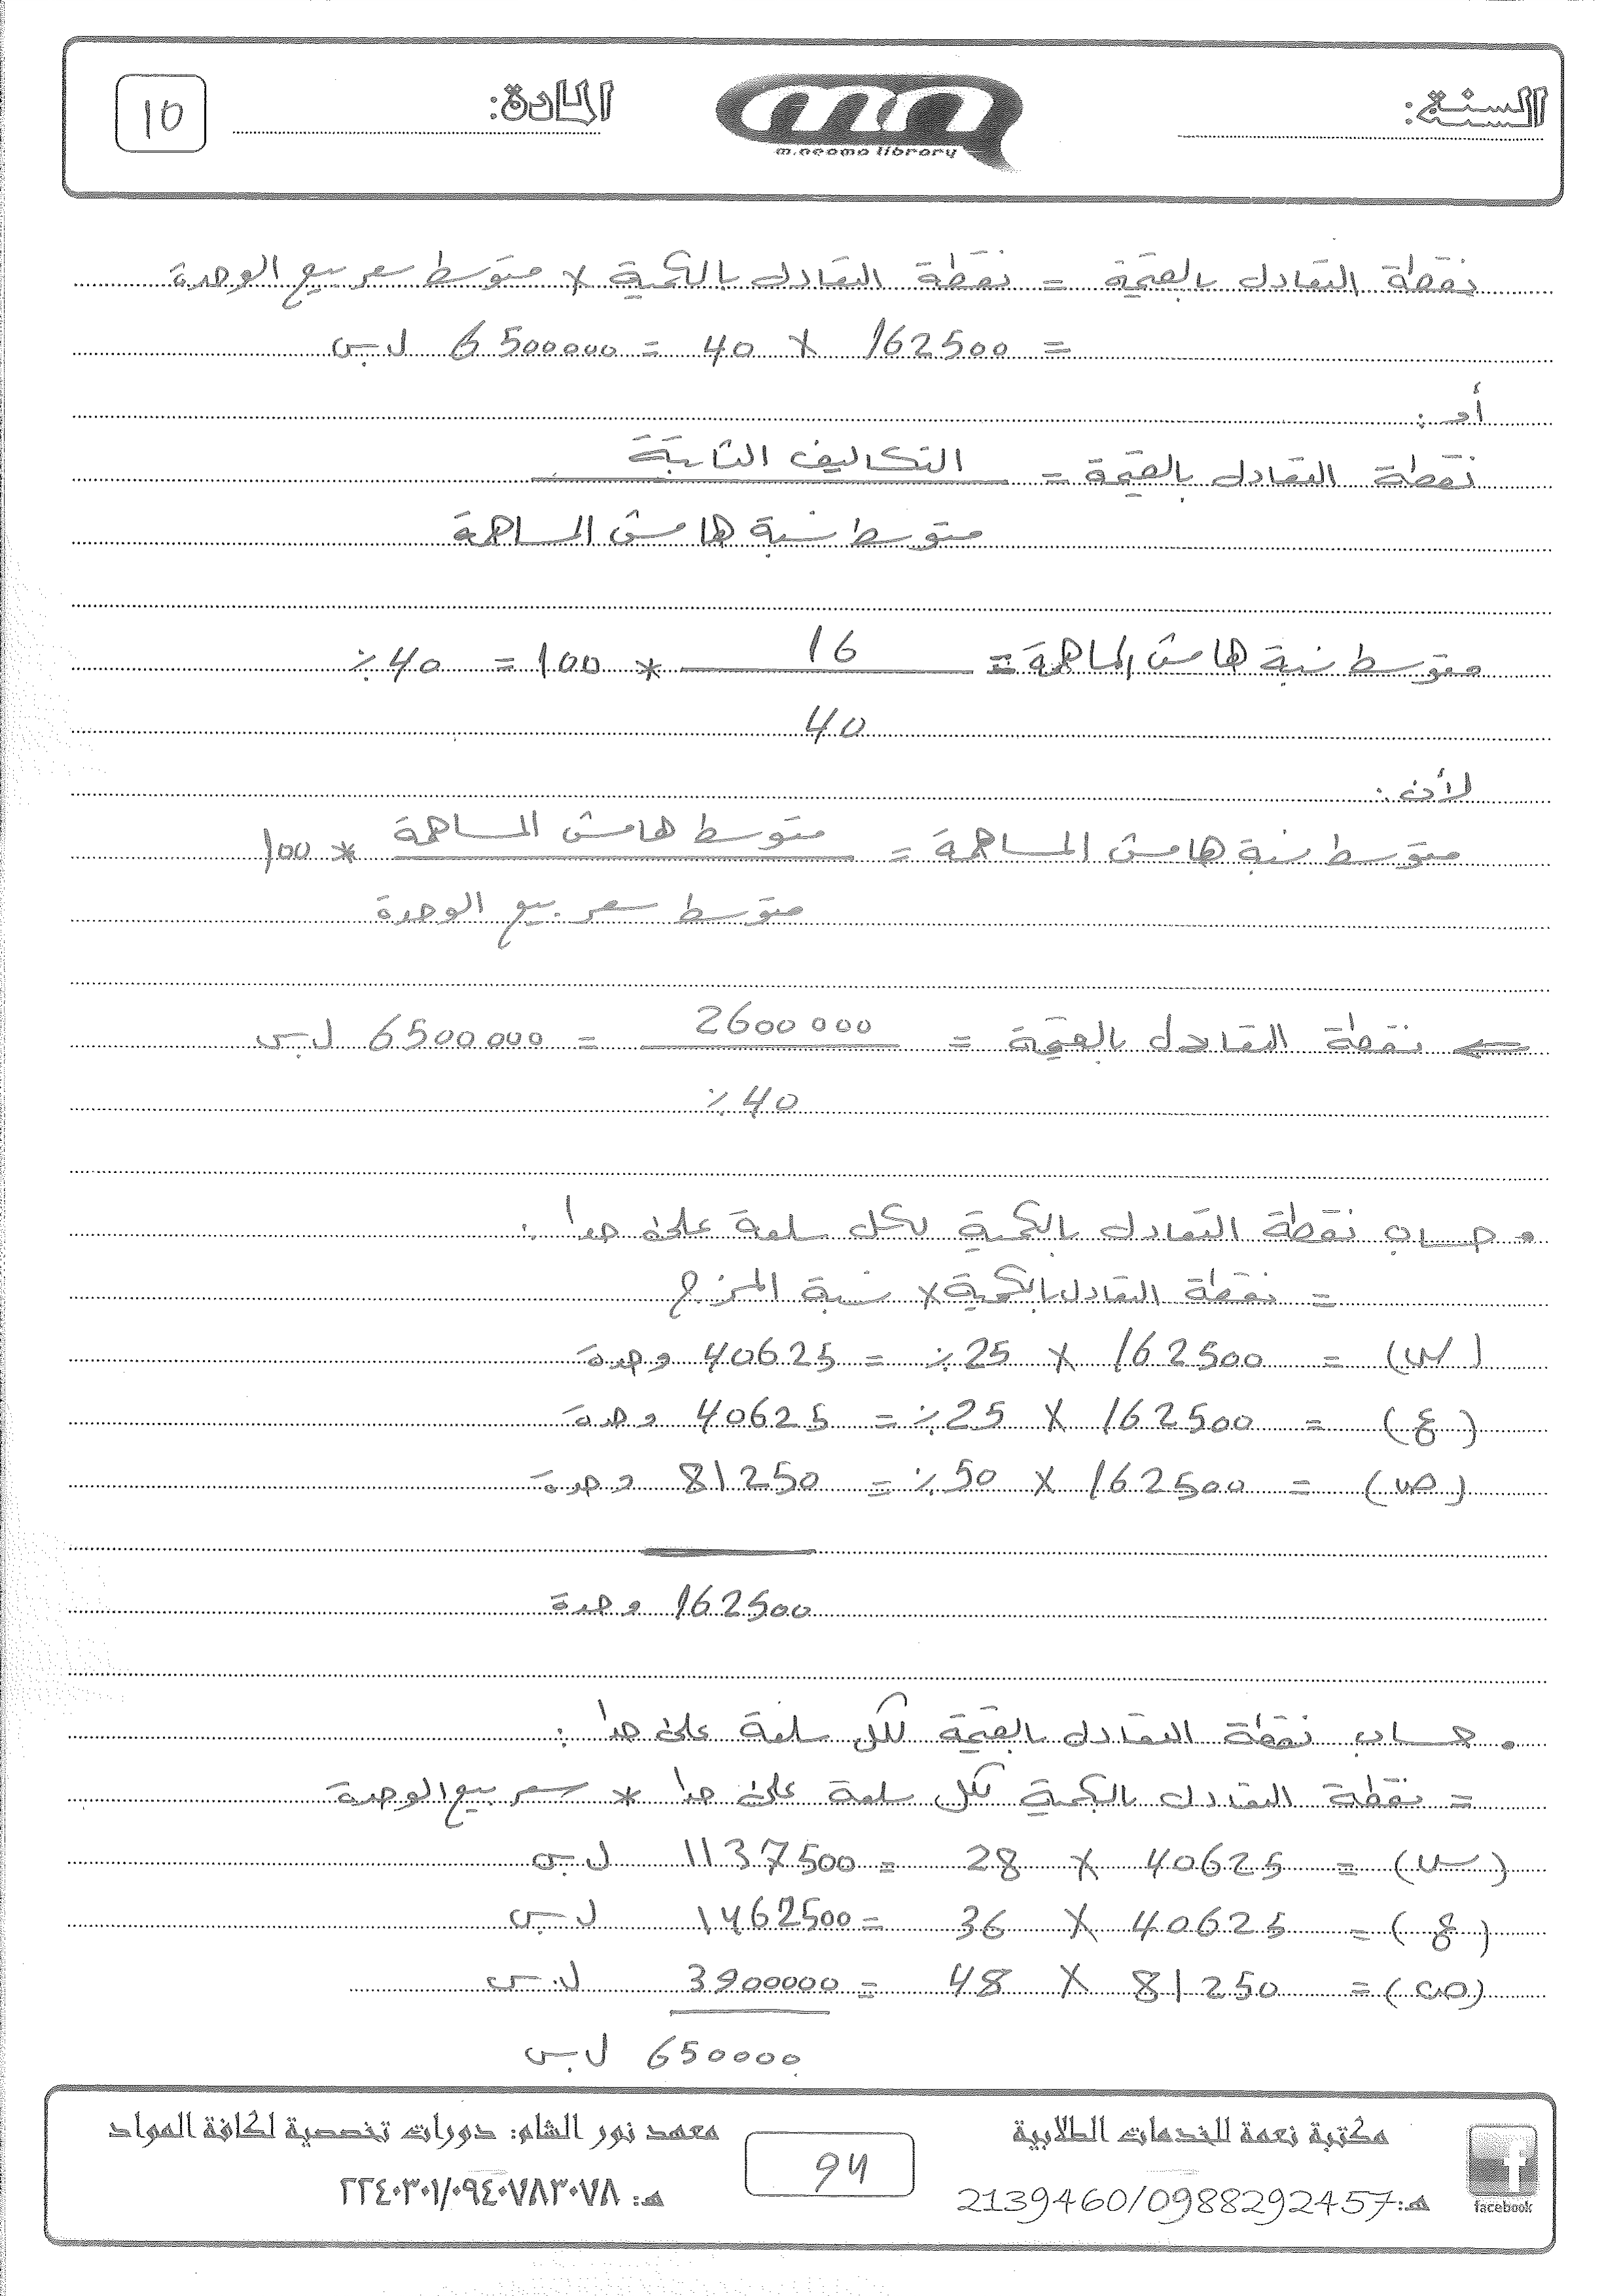 السنة:
m.neama library
المادة:
10
نقطة التعادل بالقيمة = نقطة التعادل بالكمية × متوسط سعر بيع الوحدة
= 162500 × 40 = 6500000 ل.س
أو:
نقطة التعادل بالقيمة = التكاليف الثابتة
متوسط نسبة هامش المساهمة
متوسط نسبة هامش المساهمة = 16 * 100 = 40 ٪
40
لأن:
متوسط نسبة هامش المساهمة = متوسط هامش المساهمة * 100
متوسط سعر بيع الوحدة
⇐ نقطة التعادل بالقيمة = 2600000 = 6500000 ل.س
40 ٪
• حساب نقطة التعادل بالكمية لكل سلعة على حدا:
= نقطة التعادل بالكمية × نسبة المزج
(س) = 162500 × 25 ٪ = 40625 وحدة
(ع) = 162500 × 25 ٪ = 40625 وحدة
(ص) = 162500 × 50 ٪ = 81250 وحدة
162500 وحدة
• حساب نقطة التعادل بالقيمة لكل سلعة على حدا:
= نقطة التعادل بالكمية لكل سلعة على حدا * سعر بيع الوحدة
(س) = 40625 × 28 = 1137500 ل.س
(ع) = 40625 × 36 = 1462500 ل.س
(ص) = 81250 × 48 = 3900000 ل.س
650000 ل.س
مكتبة نعمة للخدمات الطلابية
هـ: 2139460/0988292457
facebook
94
معهد نور الشام: دورات تخصصية لكافة المواد
هـ: ٢٢٤٠٣٠١/٠٩٤٠٧٨٣٠٧٨